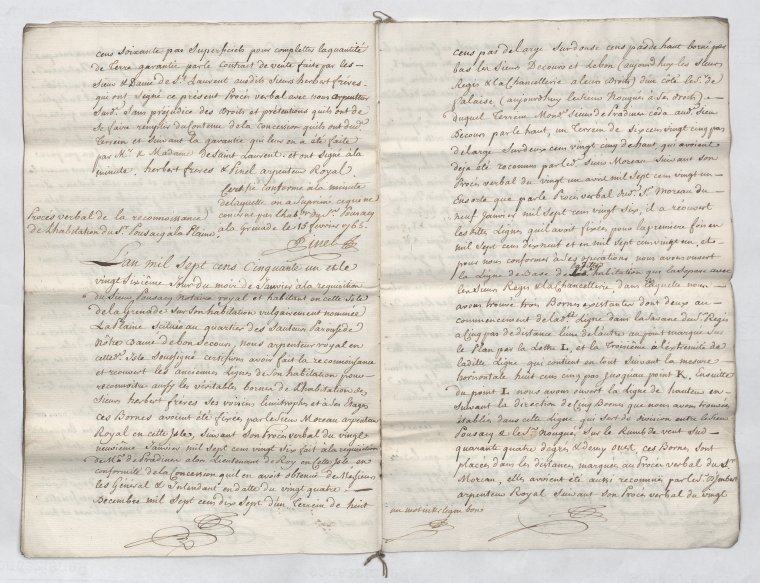 cens soixante pas superficiels pour completter la quantité
de terre garantie par le contrat de vente faite par les
Sieur & Dame de St. Laurent auxdits Sieurs herbert freres
qui ont signé ce present Procès verbal avec nous arpenteur
Sans prejudice des droits et pretentions qu'ils ont de
se faire remplir du contenu de la concession qu'ils ont dud.
Terrein et suivant la garantie qui leur en a été faite
par Mr. & Madame de Saint Laurent et ont signé à la
minute. herbert freres & Pinel arpenteur Royal.
Certifié conforme à la minute
de laquelle on a suprimé ce qui ne
concerne pas l'hab.on du Sr. Poussacq
à la grenade le 15 fevrier 1765.
Pinel
Procès verbal de la reconnoissance
de l'habitation du Sr. Poussacq à la Plaine
L'an mil sept cens Cinquante un et le
vingt sixième Jour du mois de Janvier à la requisition
du Sieur Poussacq Notaire royal et habitant en cette Isle
de la Grenade sur son habitation vulgairement nommée
La Plaine scituée au quartier des Sauteurs Paroisse de
Nôtre Dame de bon Secours, nous arpenteur royal en
cette d. Isle soussigné certifions avoir fait la reconnoissance
et reouvert les anciennes lignes de son habitation pour
reconnoitre aussy les veritables bornes de l'habitation des
Sieurs herbert freres ses voisins limitrophes et à son Etage
ces Bornes avoient été fixées par le Sieur Moreau arpenteur
Royal en cette Isle, Suivant son Procès verbal du vingt
neuvieme Janvier mil sept cens vingt six fait à la requisition
de Mr. de Pradines alors Lieutenant de Roy en cette Isle, en
conformité de la Concession qu'il en avoit obtenue de Messieurs
les Général & Intendant en datte du vingt quatre
Decembre mil sept cens dix sept d'un Terrein de huit
cens pas de large sur douse cens pas de haut borné par
bas les Sieurs Decours et Lebon (aujourdhuy les Sieurs
Regis & la Chancellerie à leurs droits) d'un côté le Sr. de
Galaise (aujourdhuy le Sieur Nouguès à ses droits)
duquel Terrein Mond. Sieur de Pradines ceda au d. Sieur
Decours par le haut, un Terrein de six cens vingt cinq pas
de large sur deux cens vingt cinq de haut qui avoient
deja été reconnu par led. Sieur Moreau suivant son
Procès verbal du vingt un avril mil sept cens vingt un
ensorte que par le Procès verbal dud. Sr. Moreau du
neuf Janvier mil sept cens vingt six, il a réouvert
les dittes lignes qu'il avoit fixées pour la premiere fois en
mil sept cens dix neuf et en mil sept cens vingt un, et
pour nous conformer à ses operations, nous avons ouvert
la Ligne de Base de laditte habitation qui la separe avec
les Sieurs Regis & la Chancellerie, dans laquelle nous
avons trouvé trois Bornes existantes dont deux au
commencement de lad. Ligne dans la Savane du Sr. Regis
à Cinq pas de distance l'une de l'autre au point marqué sur
le Plan par la Lettre I, et la Troisième à l'extremité de
laditte Ligne qui contient en tout suivant la mesure
horisontale huit cens cinq pas jusqu'au point K. Ensuitte
du point I nous avons ouvert la ligne de hauteur en
suivant la direction de Cinq Bornes que nous avons trouvées
établies dans cette ligne qui sert de division entre le Sieur
Poussacq & le Sr. Nouguès sur le Rumb de vent sud
quarante quatre degrés & demy ouest, ces Bornes sont
placées dans les distances marquées au Procès verbal du Sr.
Moreau, elles avoient été aussi reconnues par le Sr.
arpenteur Royal suivant son Procès verbal du vingt
un mot interligne bon